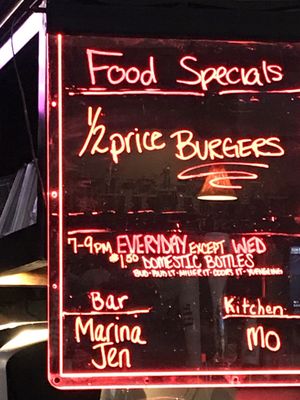 Food Specials
1/2 price BURGERS
7-9PM EVERYDAY EXCEPT WED
@1.50 DOMESTIC BOTTLES
BUD·BUD LT·MILLER LT·COORS LT·YUENGLING
Bar
Marina
Jen
Kitchen
MO